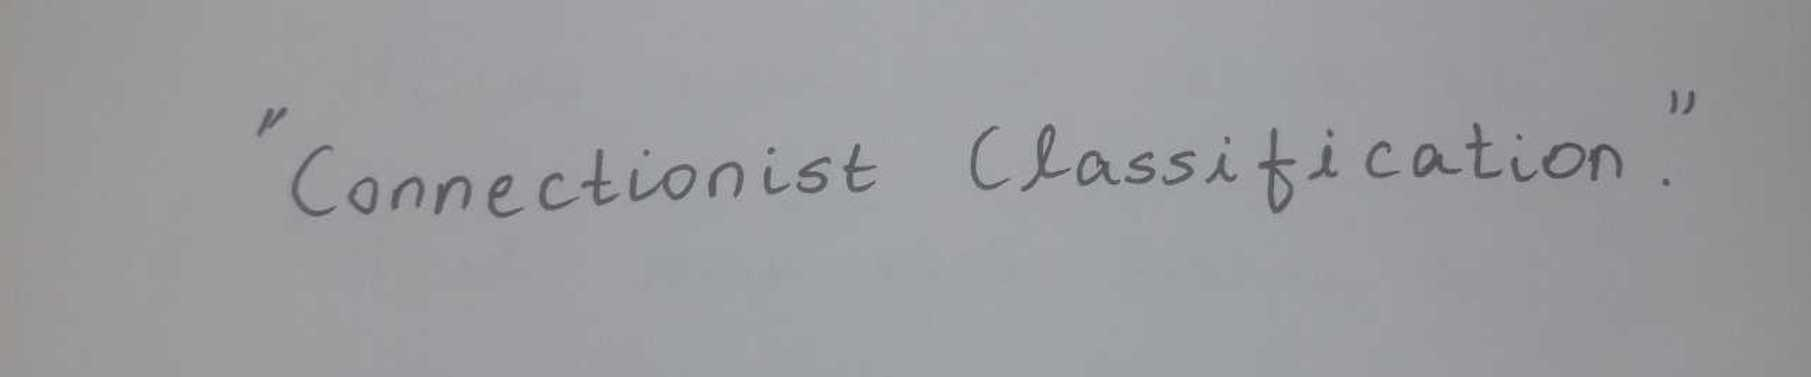 "Connectionist Classification."